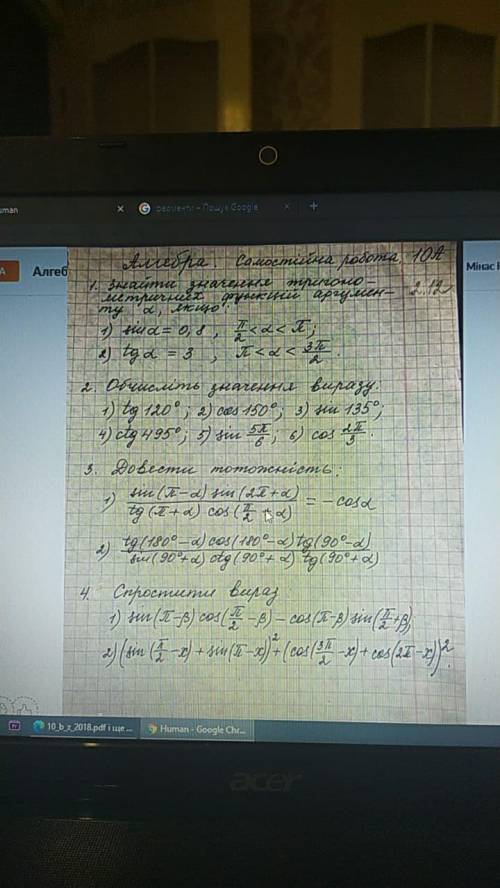 uman × G ферменти – Пошук Google × +
А Алгеб Мінас
Алгебра Самостійна робота 10А
1. Знайти значення тригоно 2.12
метричних функцій аргумен-
ту α, якщо:
1) sinα = 0,8 , π/2 < α < π;
2) tgα = 3 , π < α < 3π/2.
2. Обчисліть значення виразу.
1) tg 120°; 2) cos 150°; 3) sin 135°;
4) ctg 495°; 5) sin 5π/6; 6) cos 2π/3.
3. Довести тотожність:
1) sin(π-α) sin(2π+α) / tg(π+α) cos(π/2+α) = -cosα
2) tg(180°-α) cos(180°-α) tg(90°-α) / sin(90°+α) ctg(90°+α) tg(90°+α)
4. Спростити вираз
1) sin(π-β) cos(π/2-β) - cos(π-β) sin(π/2+β);
2) (sin(π/2-x) + sin(π-x))² + (cos(3π/2-x) + cos(2π-x))².
10_b_z_2018.pdf і ще ... Human - Google Chr...
acer